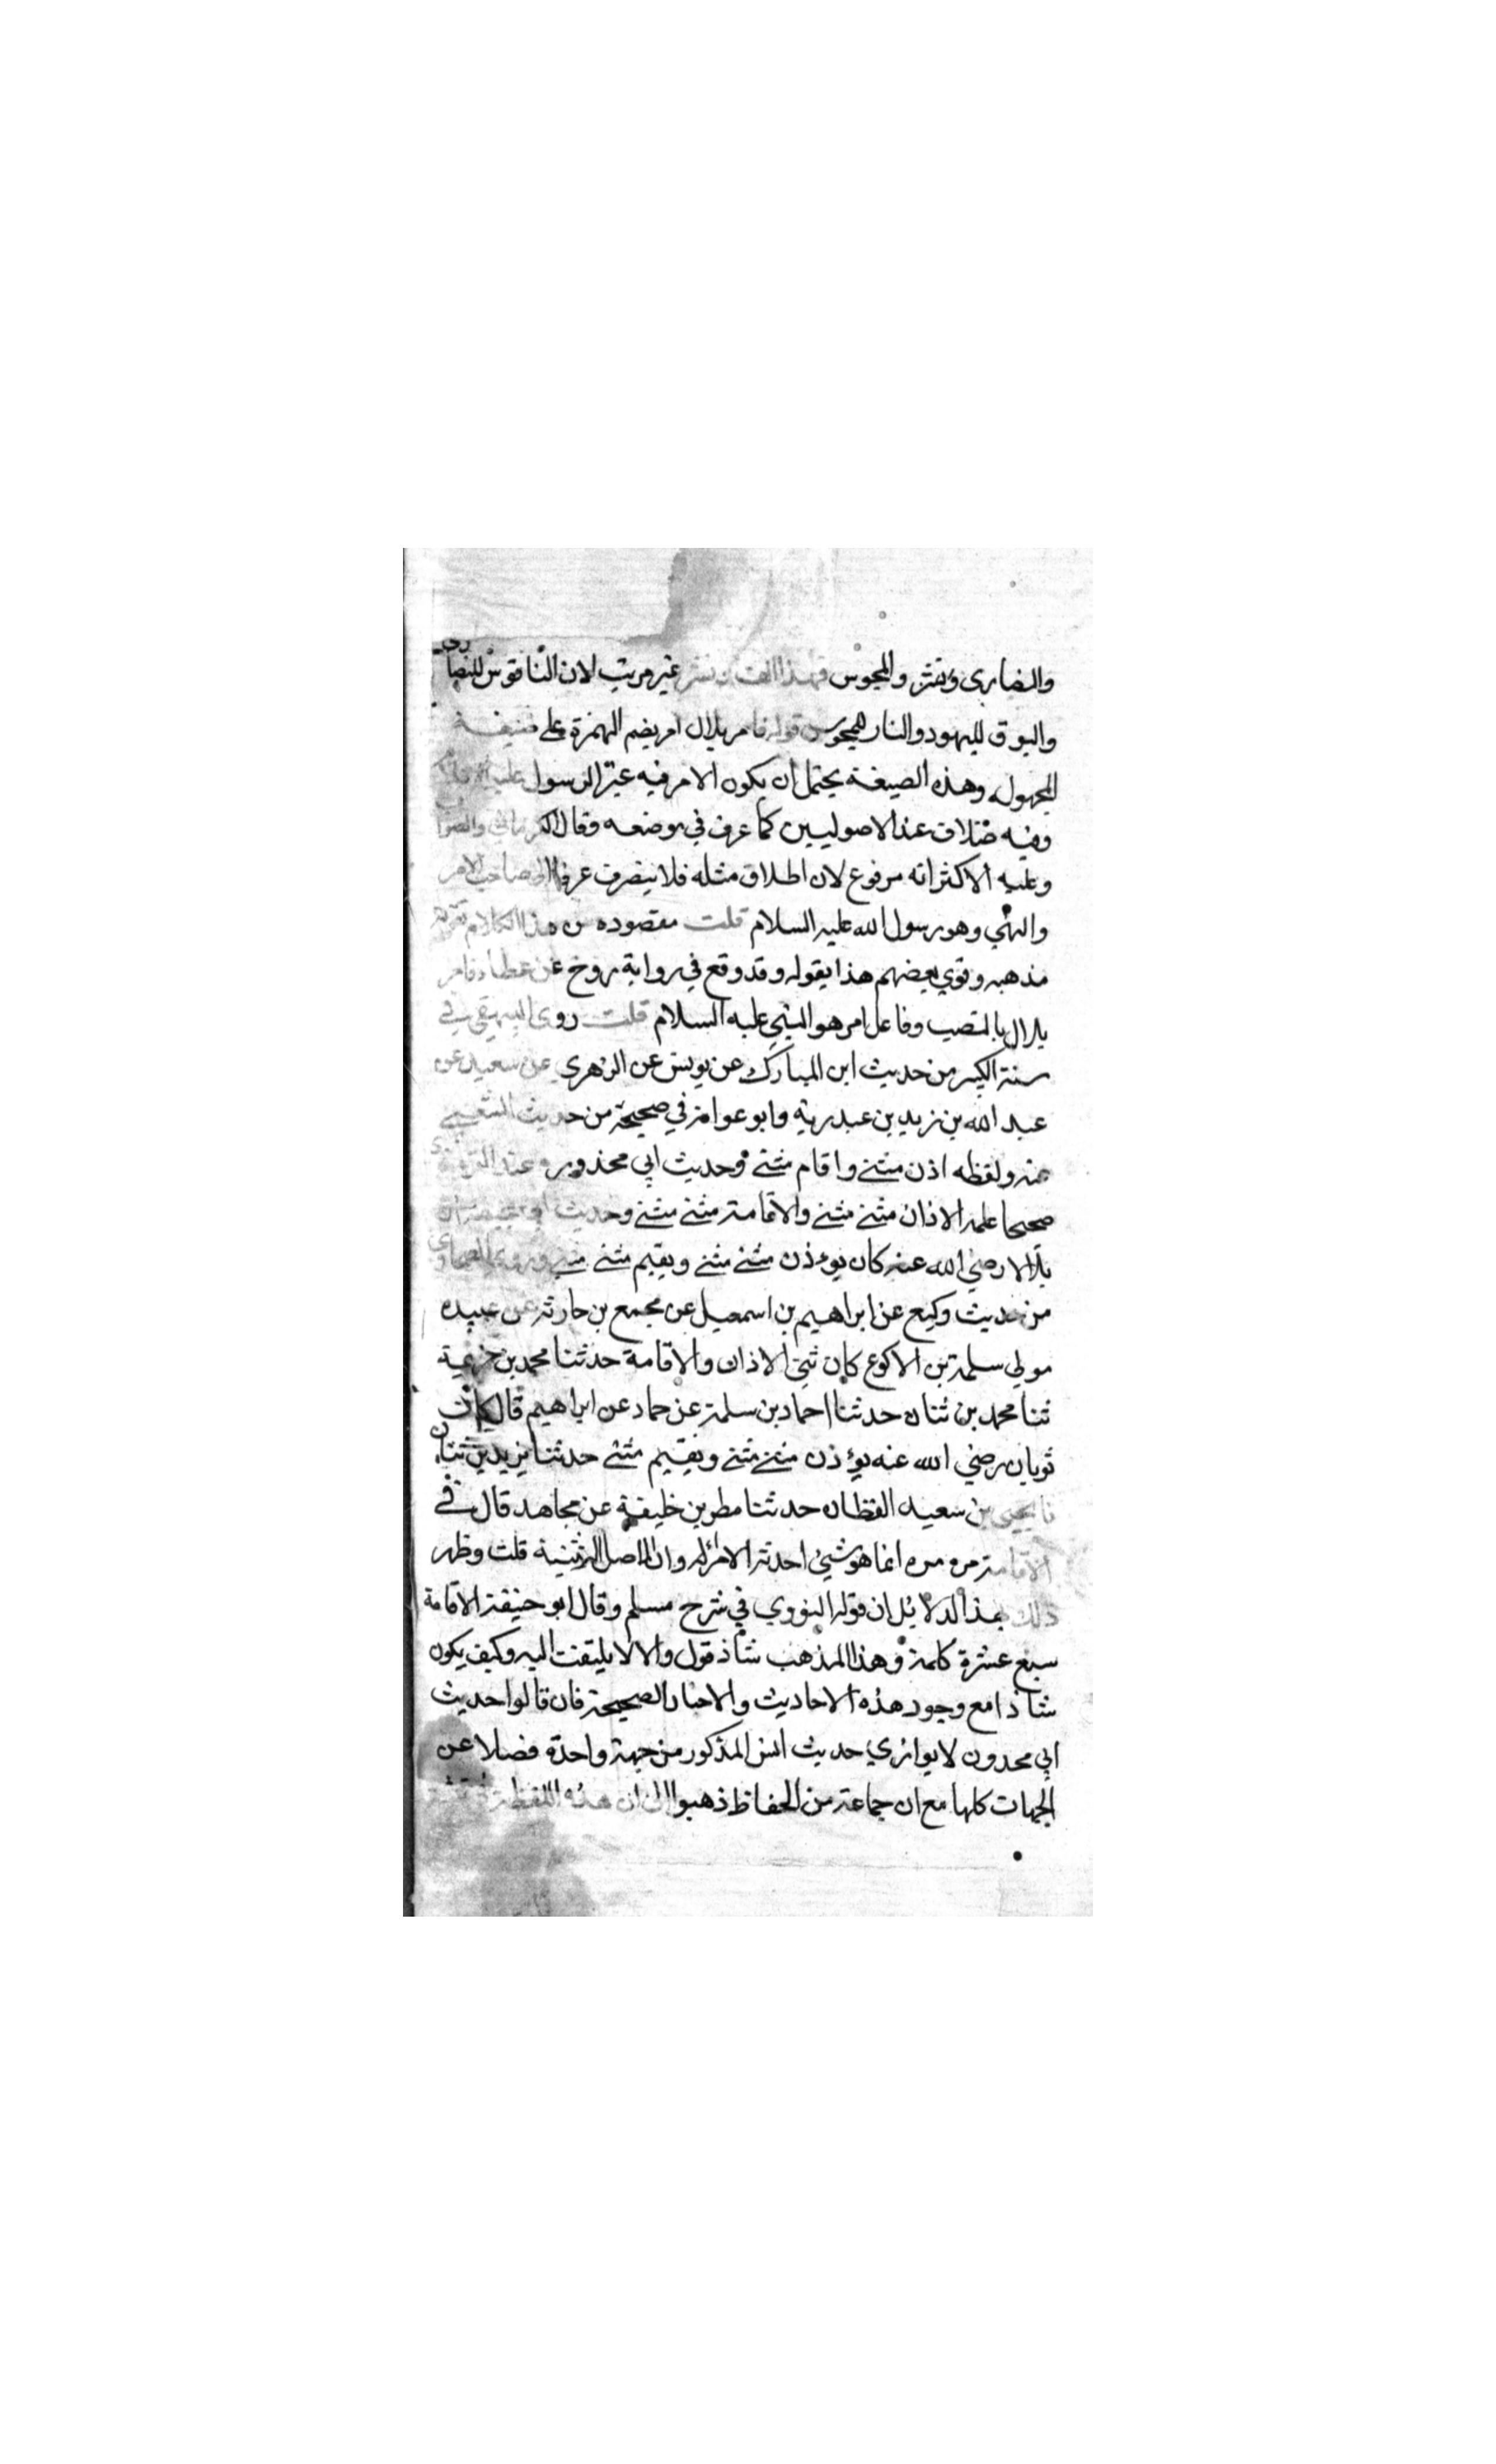 والنصارى ونشر والمجوس فهذا اللف نشر غير مرتب لان الناقوس للنصارى
والبوق لليهود والنار للمجوس قوله فامر بلال امر بضم الهمزة على صيغة
المجهول وهذه الصيغة يحتمل أن يكون الامر فيه غير الرسول عليه
وفيه ختلاف عند الاصوليين كما عرف في موضعه وقال الكرماني والصواب
وعليه الاكثر انه مرفوع لان اطلاق مثله فلا ينصرف عرفا الا لصاحب الامر
والنهي وهو رسول الله عليه السلام قلت مقصوده من هذا الكلام تقرير
مذهبه وقوي بعضهم هذا بقوله وقد وقع في رواية روح عن عطاء فامر
بلال بالنصب وفاعل امر هو النبي عليه السلام قلت روى البيهقي في
سننه الكبير من حديث ابن المبارك عن يونس عن الزهري عن سعيد عن
عبد الله بن زيد بن عبد ربه وابو عوانة في صحيحه من حديث الشعبي
عنه ولفظه اذن مثنى واقام مثنى وحديث ابي محذوره عند الترمذي
صحيحا علمه الاذان مثنى مثنى والاقامة مثنى مثنى وحديث ابي جحيفة ان
بلالا رضي الله عنه كان يوءذن مثنى مثنى ويقيم مثنى مثنى وروى الطحاوي
من حديث وكيع عن ابراهيم بن اسمعيل عن مجمع بن حارثه عن عبيده
مولي سلمة بن الاكوع كان ثني الاذان والاقامة حدثنا محمد بن خزيمة
ثنا محمد بن ثنان حدثنا احماد بن سلمة عن حماد عن ابراهيم قال كان
ثوبان رضي الله عنه يؤذن مثنى مثنى ويقيم مثنى حدثنا يزيد بن ثنان
نا يحيى بن سعيد القظان حدثنا مطر بن خليفة عن مجاهد قال في
الاقامة مره مره انما هو شيئ احدثه الامرا له وان الاصل التثنية قلت وظهر
ذلك بهذا الدلائل ان قوله النووي في شرح مسلم وقال ابو حنيفة الاقامة
سبع عشرة كلمة وهذا المذهب شاذ قول والا لا يلتفت اليه وكيف يكون
شاذا مع وجود هذه الاحاديث والاخبار الصحيحة فان قالوا حديث
ابي محدون لا يوازي حديث انس المذكور من جهة واحدة فضلا عن
الجهات كلها مع ان جماعة من الحفاظ ذهبوا الى ان هذه اللفظة في